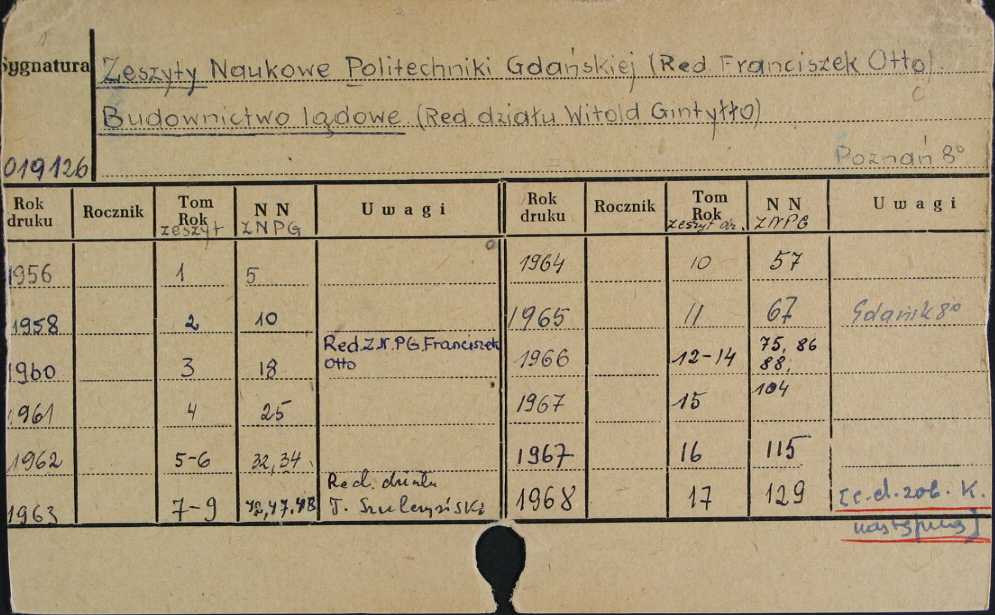 Sygnatura
Zeszyty Naukowe Politechniki Gdańskiej (Red. Franciszek Otto).
Budownictwo lądowe (Red. działu Witold Gintyłło)
019126
Poznań 8°
Rok druku Rocznik Tom Rok zeszyt N N ZNPG Uwagi Rok druku Rocznik Tom Rok zeszyt dz. N N ZNPG Uwagi
1956 1 5
1958 2 10
1960 3 18 Red. Z.N.PG. Franciszek Otto
1961 4 25
1962 5-6 32, 34.
1963 7-9 42, 47, 48 Red. działu
1964 10 57
1965 11 67 Gdańsk 8°
1966 12-14 75, 86 88;
1967 15 104
1967 16 115
1968 17 129 [c.d. zob. K.
następna]